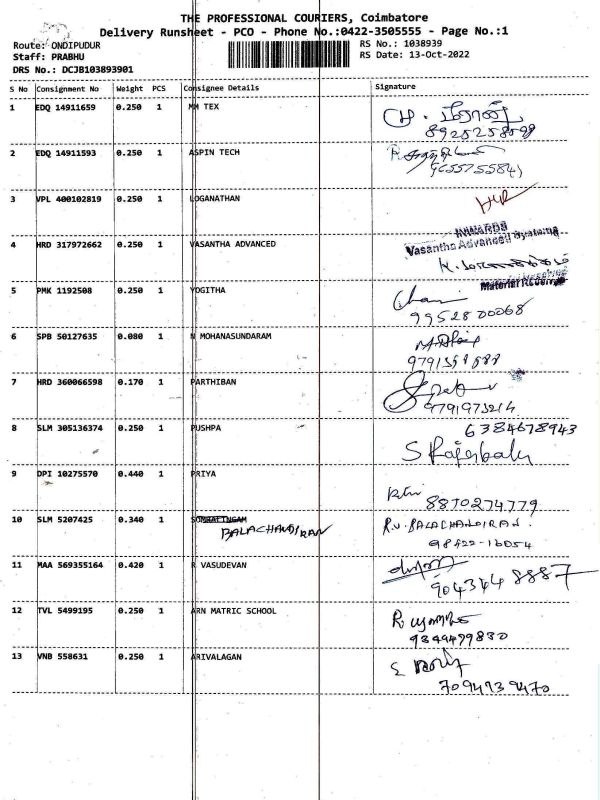 THE PROFESSIONAL COURIERS, Coimbatore
Delivery Runsheet - PCO - Phone No.:0422-3505555 - Page No.:1
Route: ONDIPUDUR
RS No.: 1038939
Staff: PRABHU
RS Date: 13-Oct-2022
DRS No.: DCJB103893901
S No Consignment No Weight PCS Consignee Details Signature
1 EDQ 14911659 0.250 1 MM TEX
2 EDQ 14911593 0.250 1 ASPIN TECH
3 VPL 400102819 0.250 1 LOGANATHAN
INWARDS
Vasantha Advanced Systems
4 HRD 317972662 0.250 1 VASANTHA ADVANCED
Material Received
5 PMK 1192508 0.250 1 YOGITHA
9952800068
6 SPB 50127635 0.080 1 N MOHANASUNDARAM
7 HRD 360066598 0.170 1 PARTHIBAN
8 SLM 305136374 0.250 1 PUSHPA 6384678943
9 DPI 10275570 0.440 1 PRIYA
8870274779
10 SLM 5207425 0.340 1 R.V. BALACHANDIRAN
BALACHANDIRAN
98422-16054
11 MAA 569355164 0.420 1 R VASUDEVAN
9043448887
12 TVL 5499195 0.250 1 ARN MATRIC SCHOOL
9344499830
13 VNB 558631 0.250 1 ARIVALAGAN
7094939470